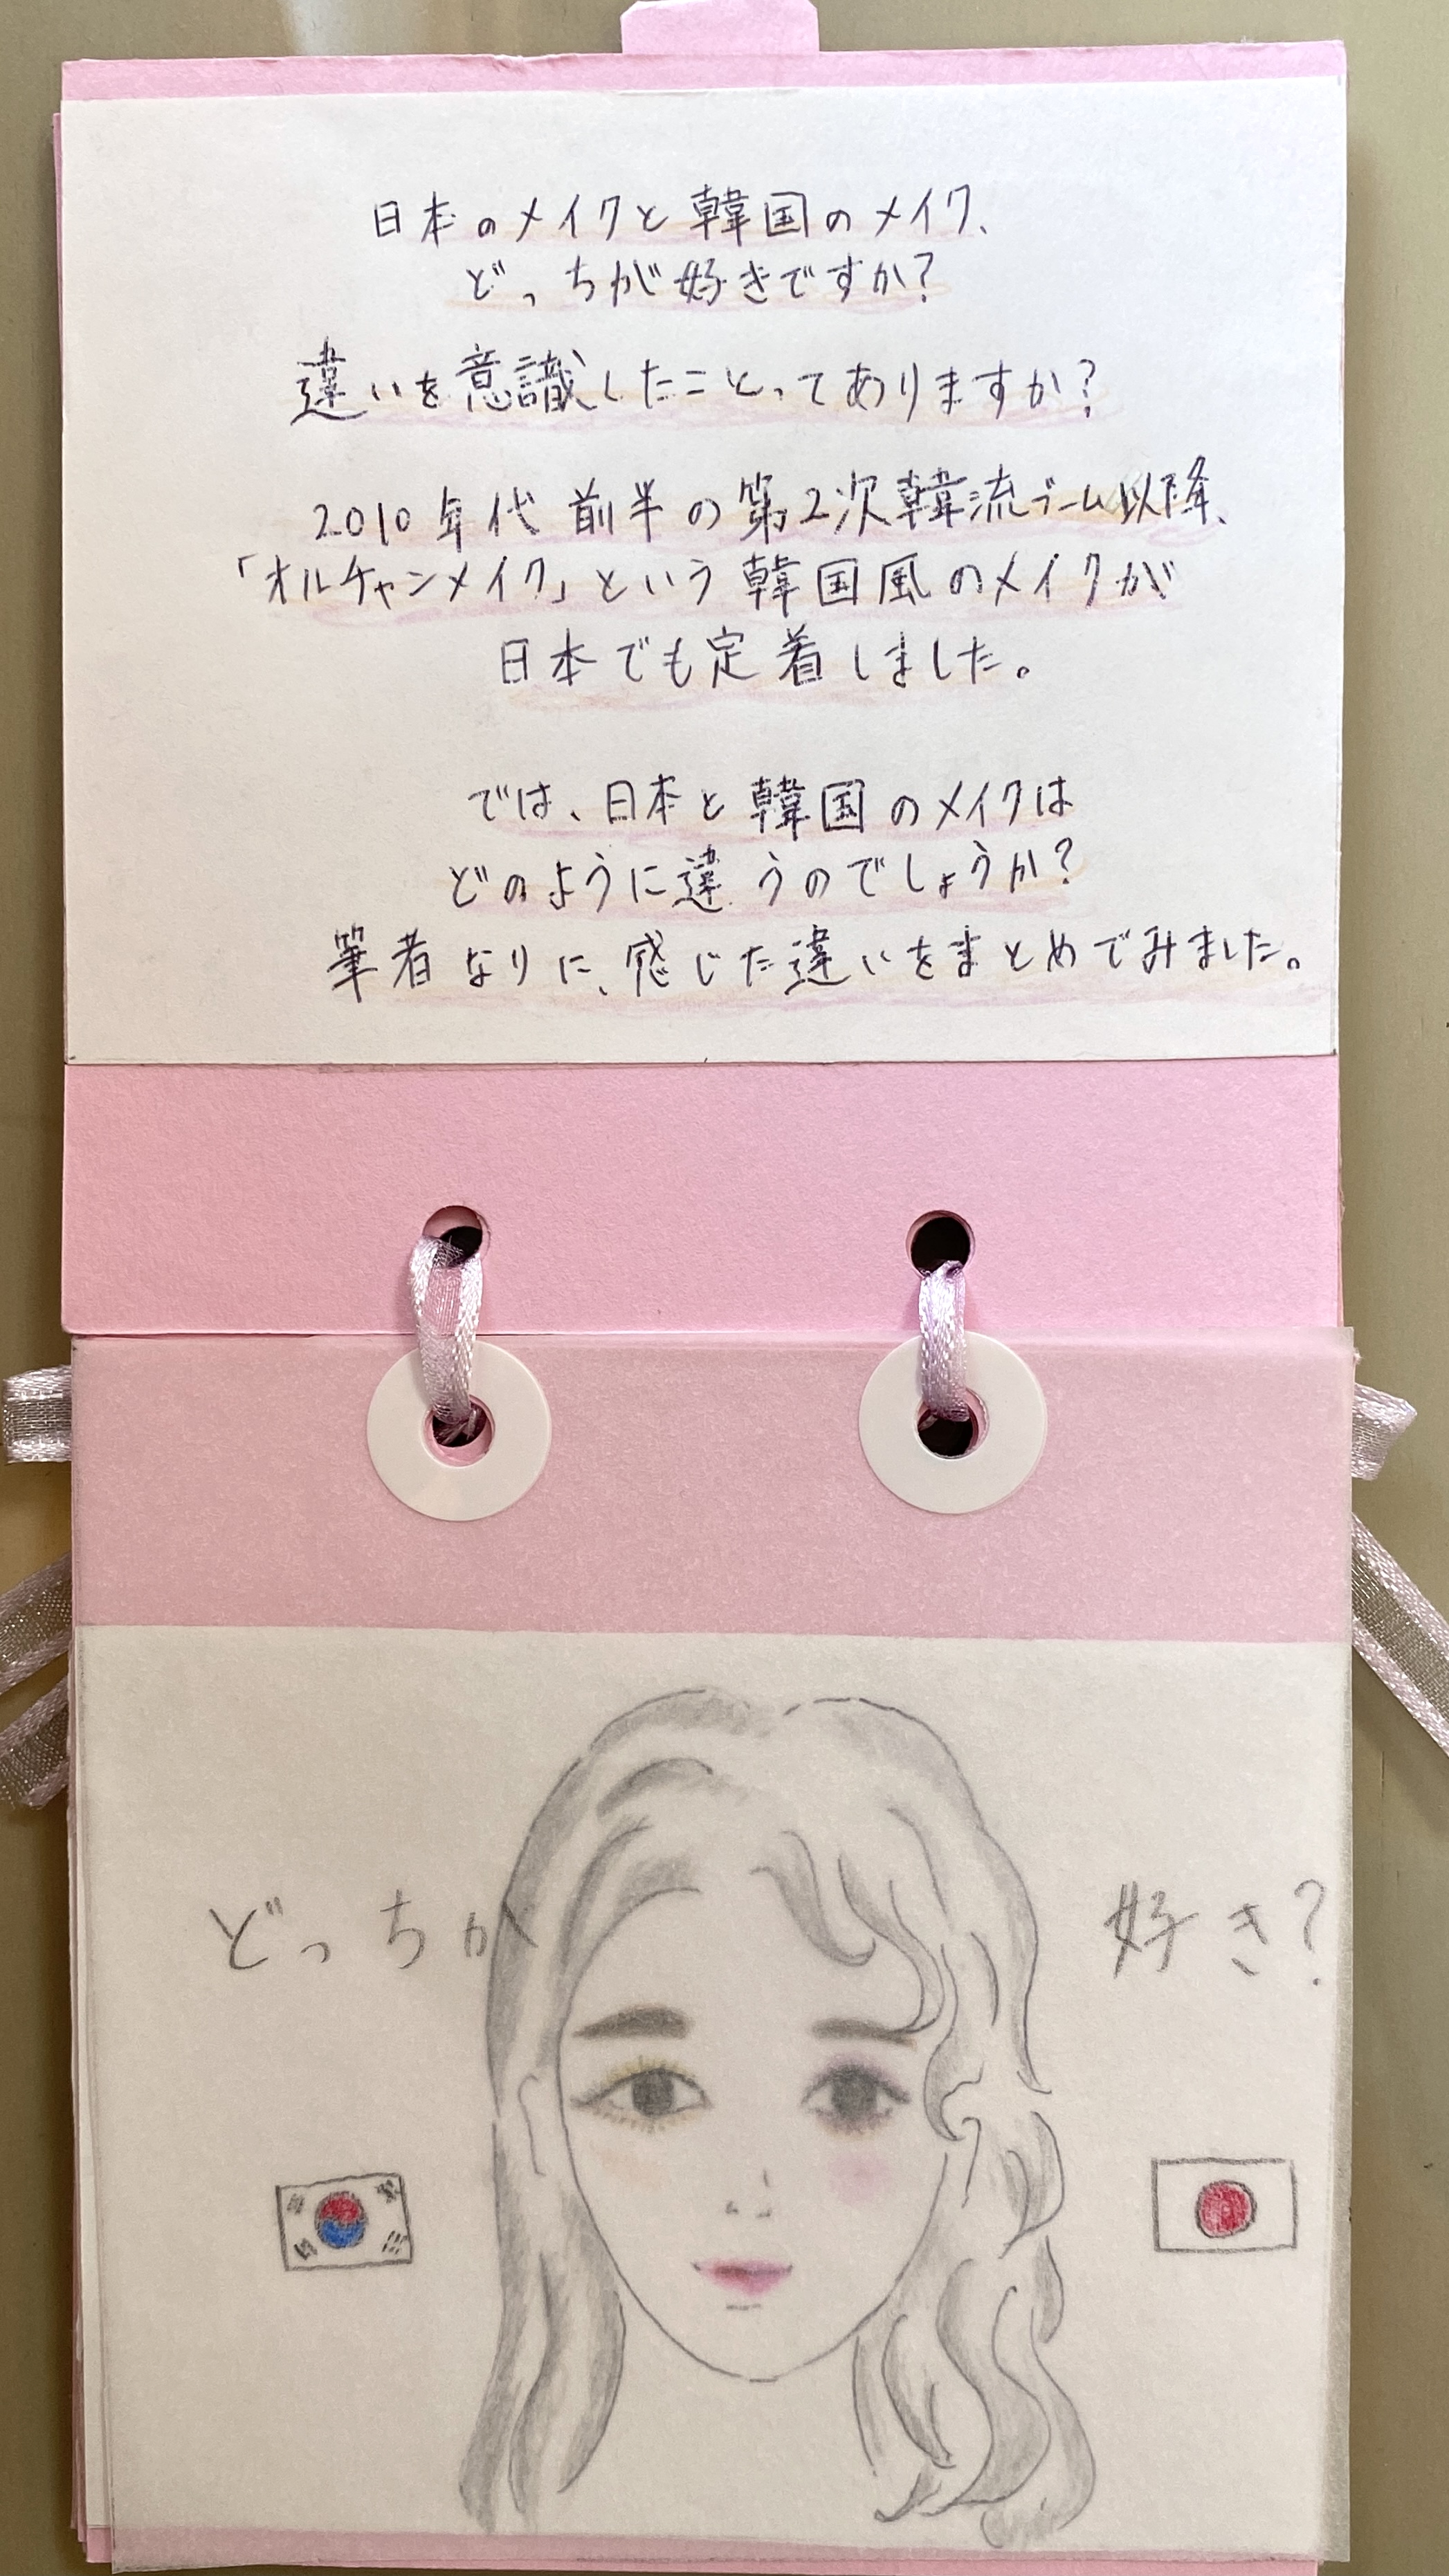 日本のメイクと韓国のメイク、
どっちが好きですか?
違いを意識したことってありますか?
2010年代前半の第2次韓流ブーム以降、
「オルチャンメイク」という韓国風のメイクが
日本でも定着しました。
では、日本と韓国のメイクは
どのように違うのでしょうか?
筆者なりに、感じた違いをまとめてみました。
どっちが 好き?